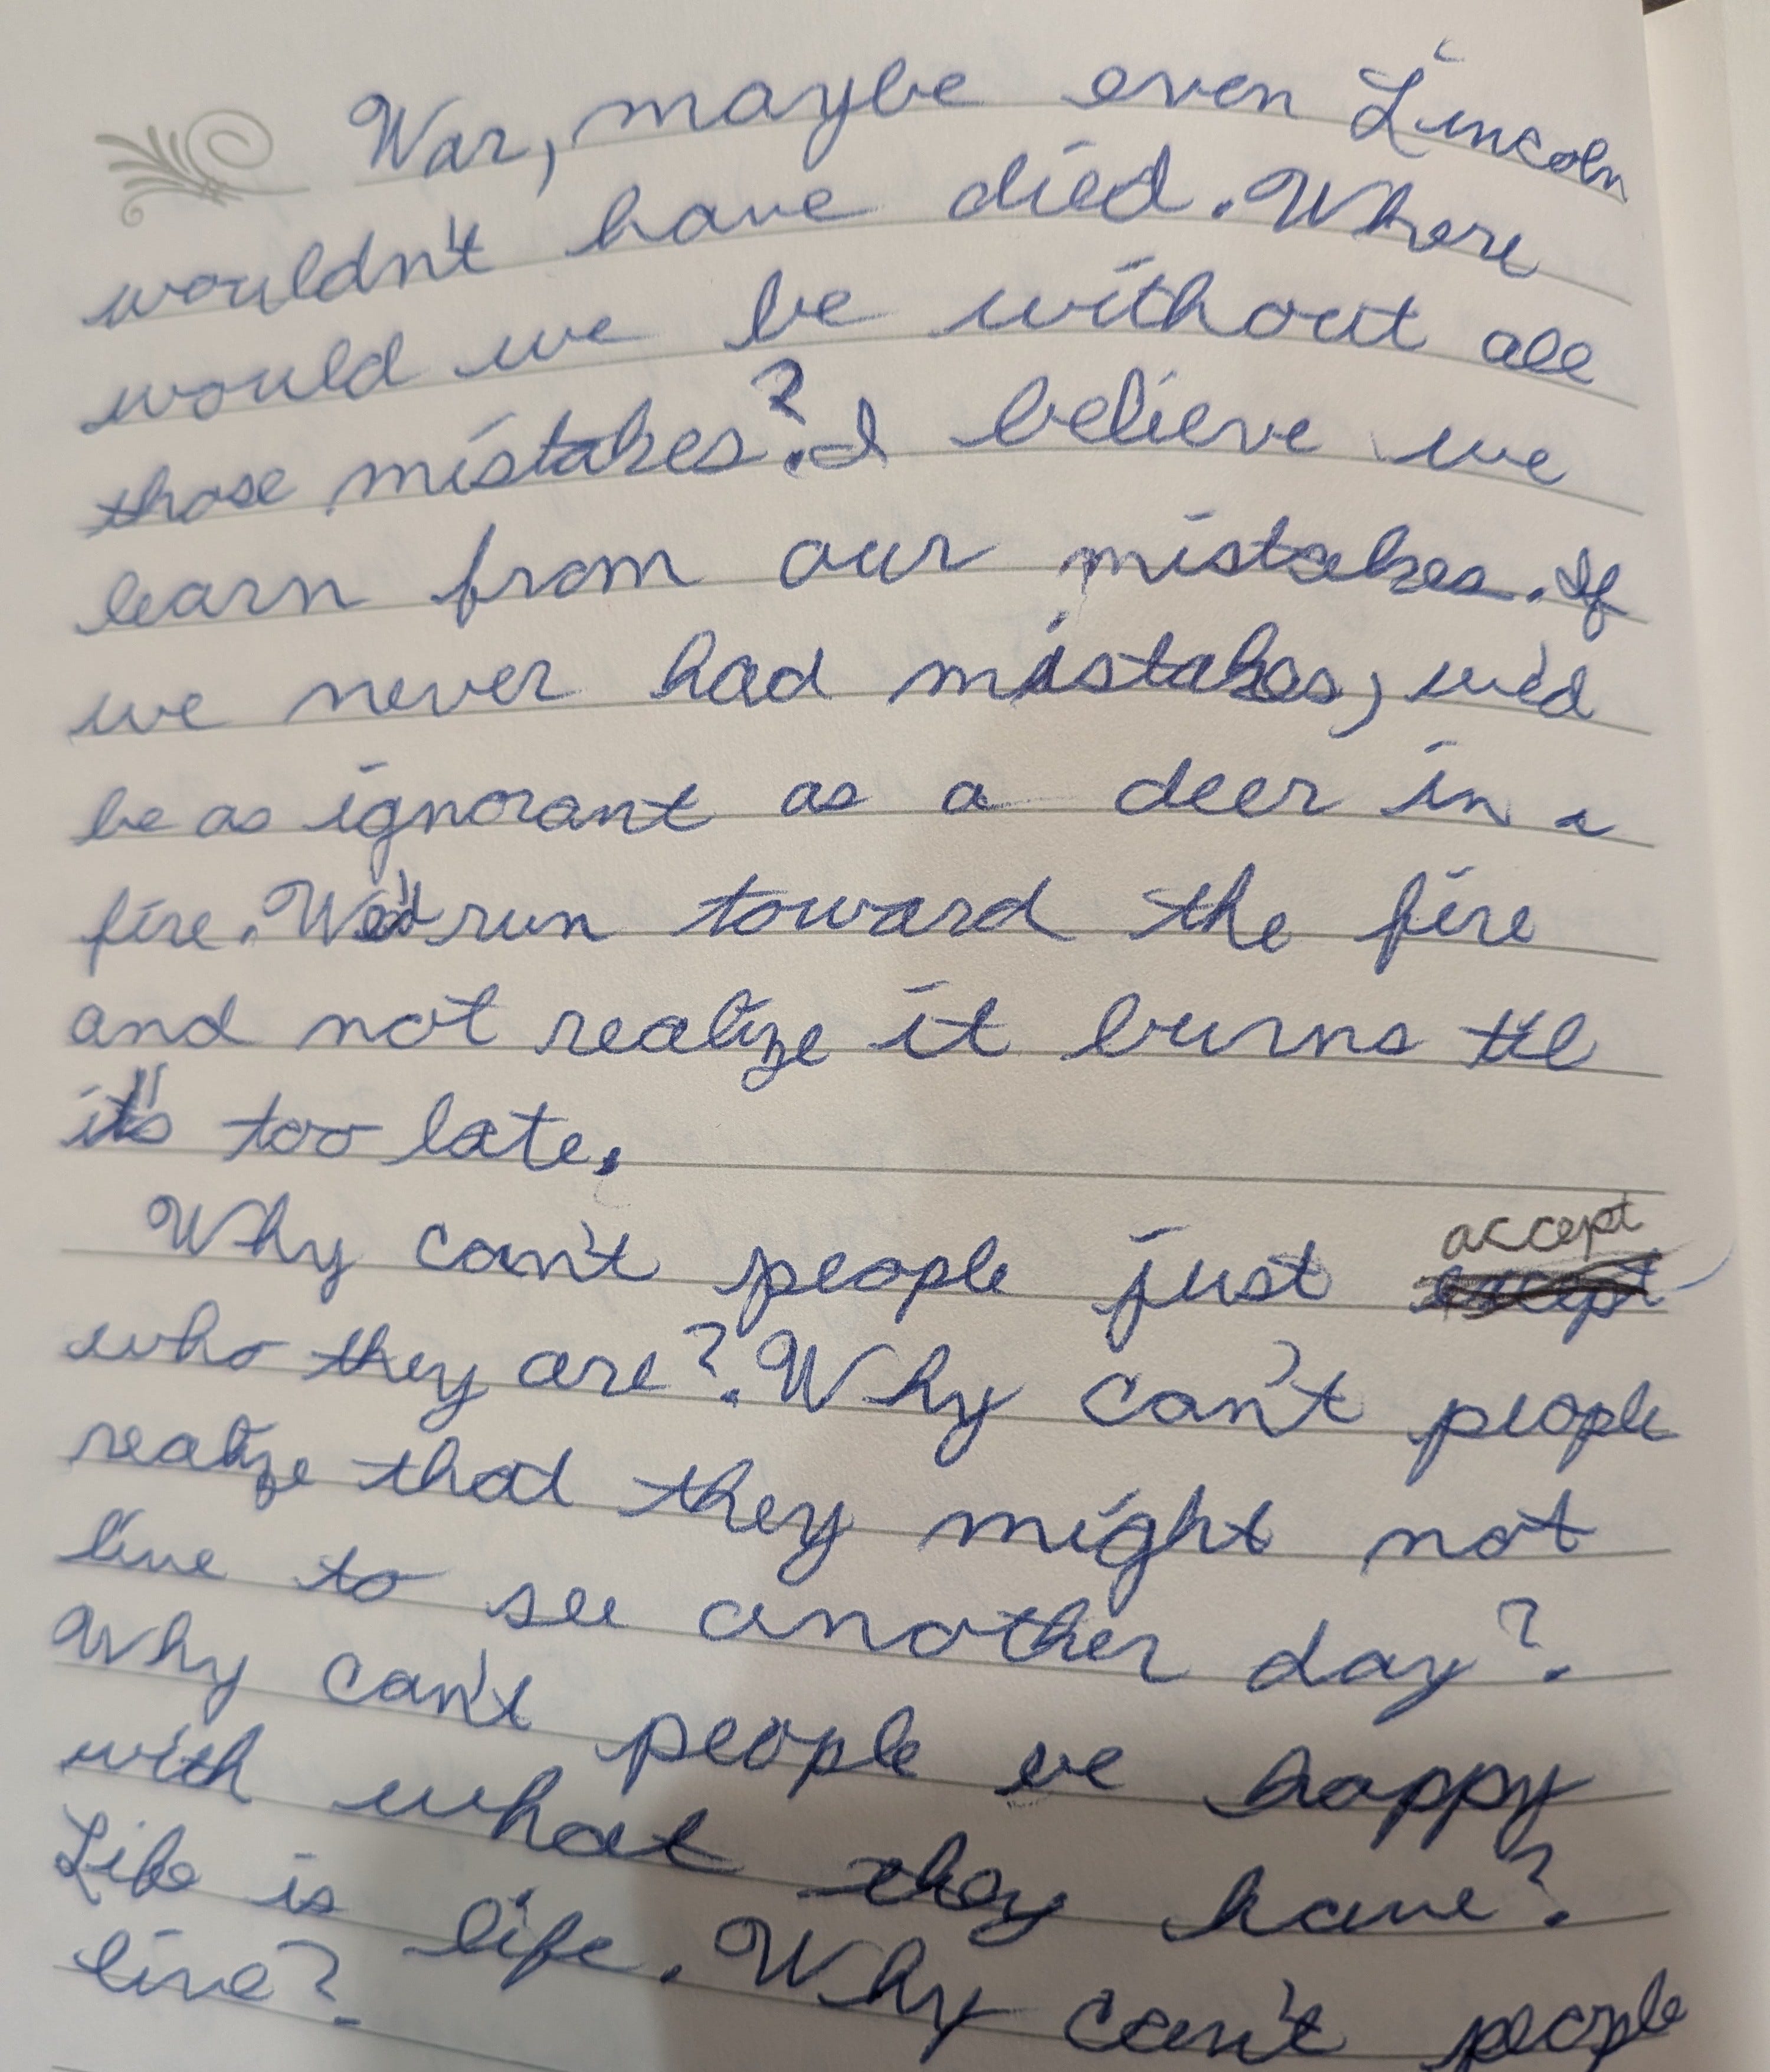 War, maybe even Lincoln
wouldn't have died. Where
would we be without all
those mistakes? I believe we
learn from our mistakes. If
we never had mistakes, we'd
be as ignorant as a deer in a
fire. We'd run toward the fire
and not realize it burns til
it's too late.
Why can't people just accept
who they are? Why can't people
realize that they might not
live to see another day?
Why can't people be happy
with what they have?
Life is life. Why can't people
live?